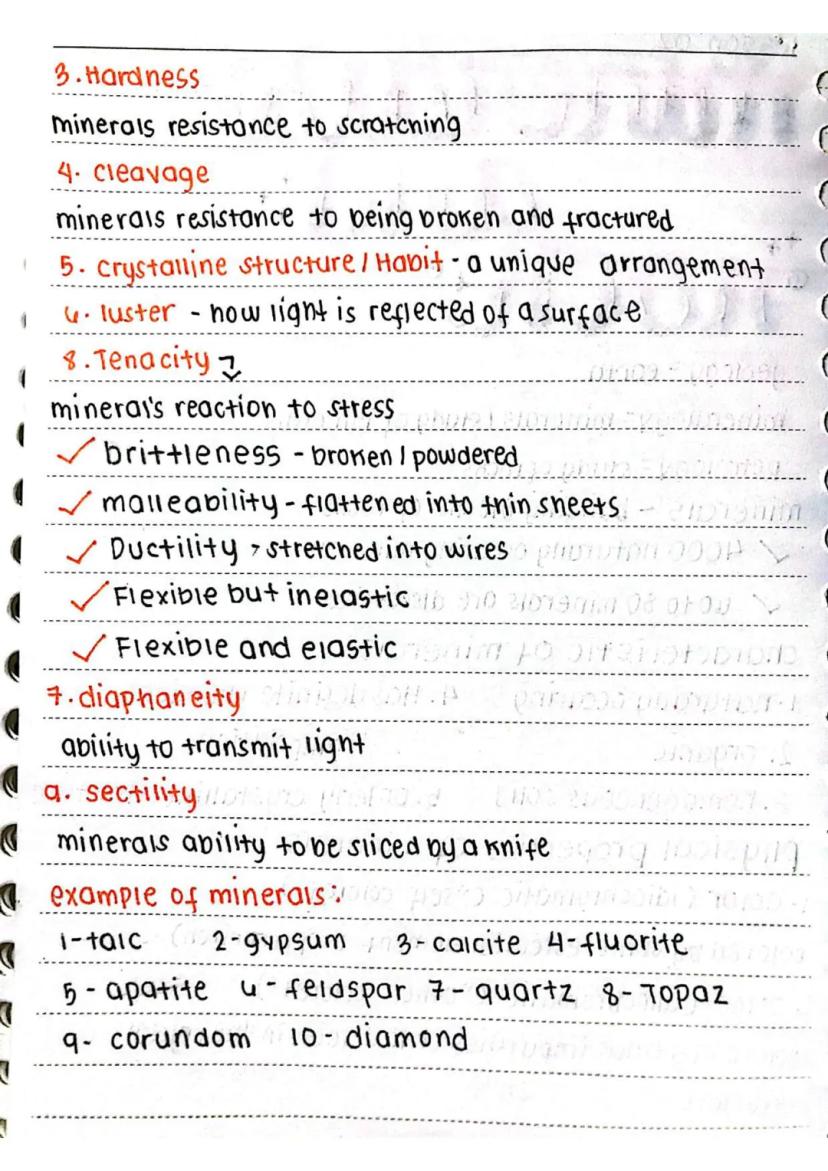 3. Hardness
minerals resistance to scratching
4. cleavage
minerals resistance to being broken and fractured
5. crystalline structure / Habit - a unique arrangement
6. luster - how light is reflected of a surface
8. Tenacity
mineral's reaction to stress
✓ brittleness - broken / powdered
✓ malleability - flattened into thin sheets
✓ Ductility > stretched into wires
✓ Flexible but inelastic
✓ Flexible and elastic
7. diaphaneity
ability to transmit light
a. sectility
minerals ability to be sliced by a knife
example of minerals:
1-talc 2-gypsum 3-calcite 4-fluorite
5-apatite 6-feldspar 7-quartz 8-Topaz
9- corundom 10-diamond